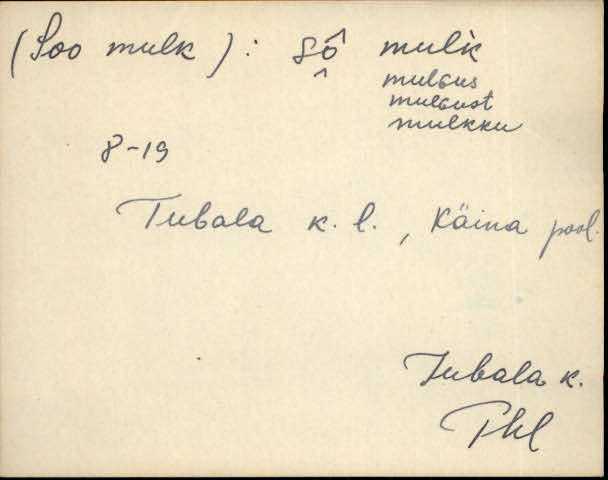 (Soo mulk): sô mulk̀
mulgus
mulgust
mulkku
8-19
Tubala k. l., Käina pool.
Tubala k.
Phl